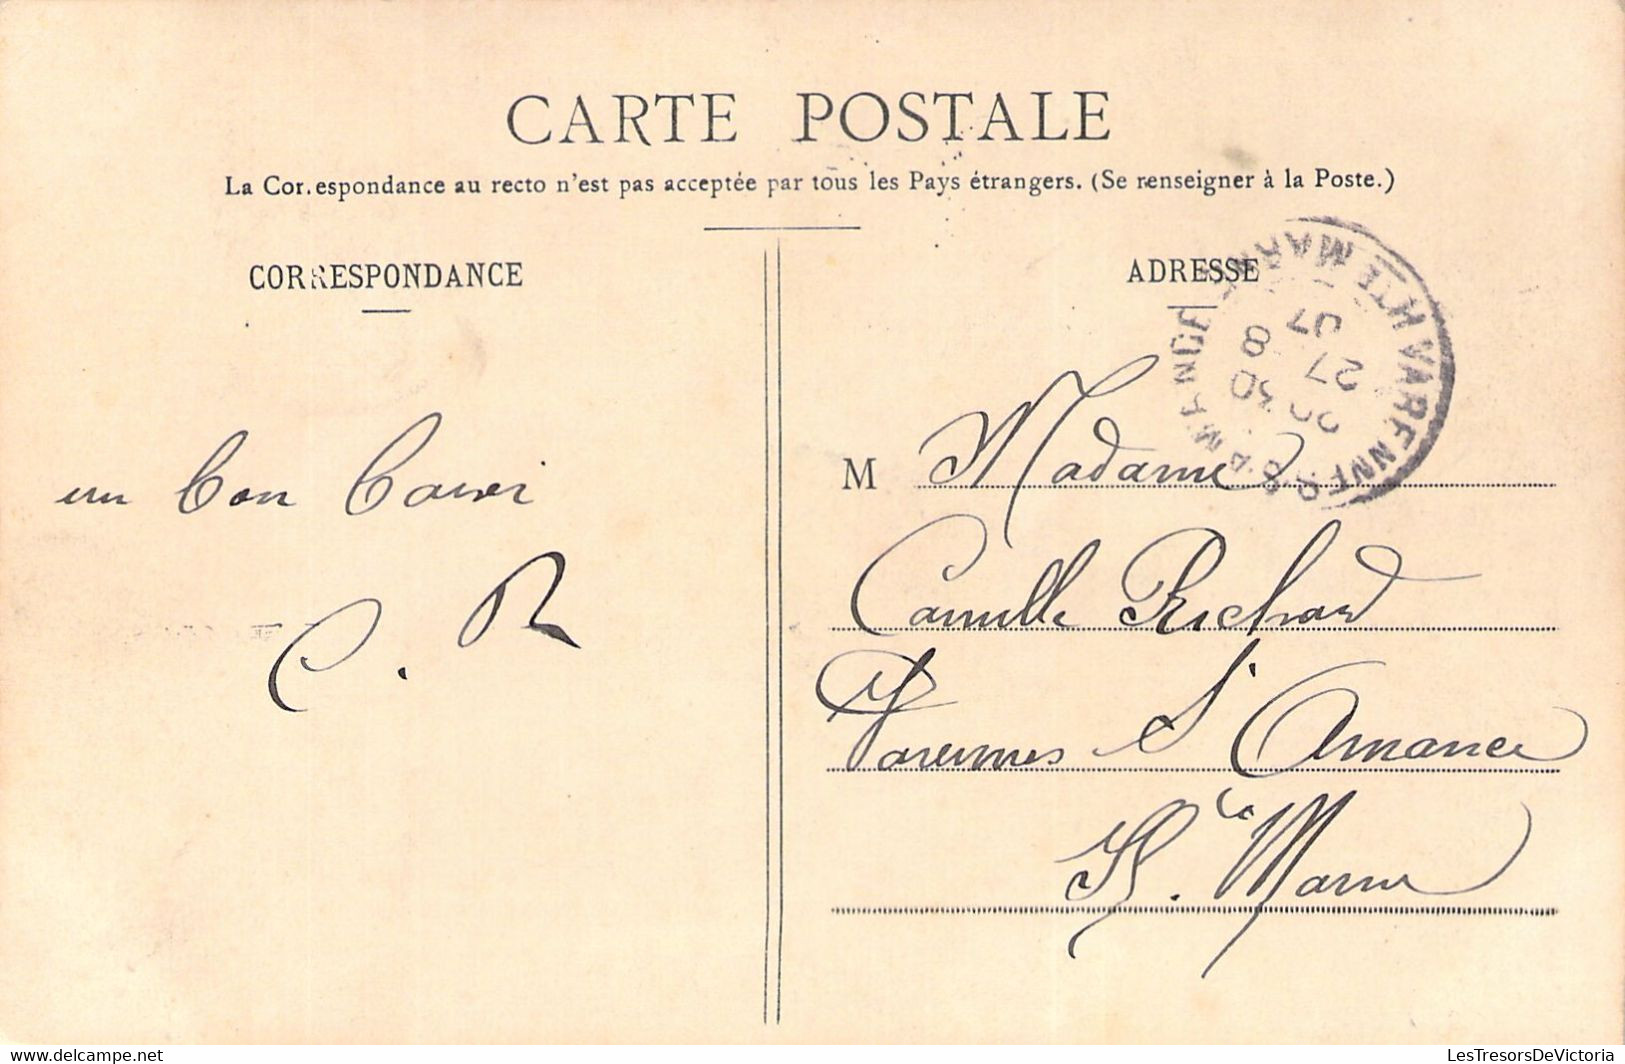 CARTE POSTALE
La Cor.espondance au recto n'est pas acceptée par tous les Pays étrangers. (Se renseigner à la Poste.)
CORRESPONDANCE
un bon baiser
C. R
ADRESSE
VARENNES S. AMANCE HTE MARNE
20 30
27 8
07
M Madame
Camille Richard
Varennes S' Amance
Hte Marne
LesTresorsDeVictoria